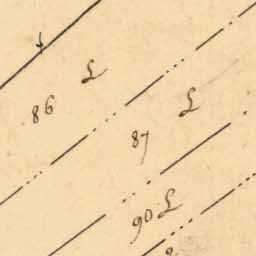 86 L
87 L
90 L